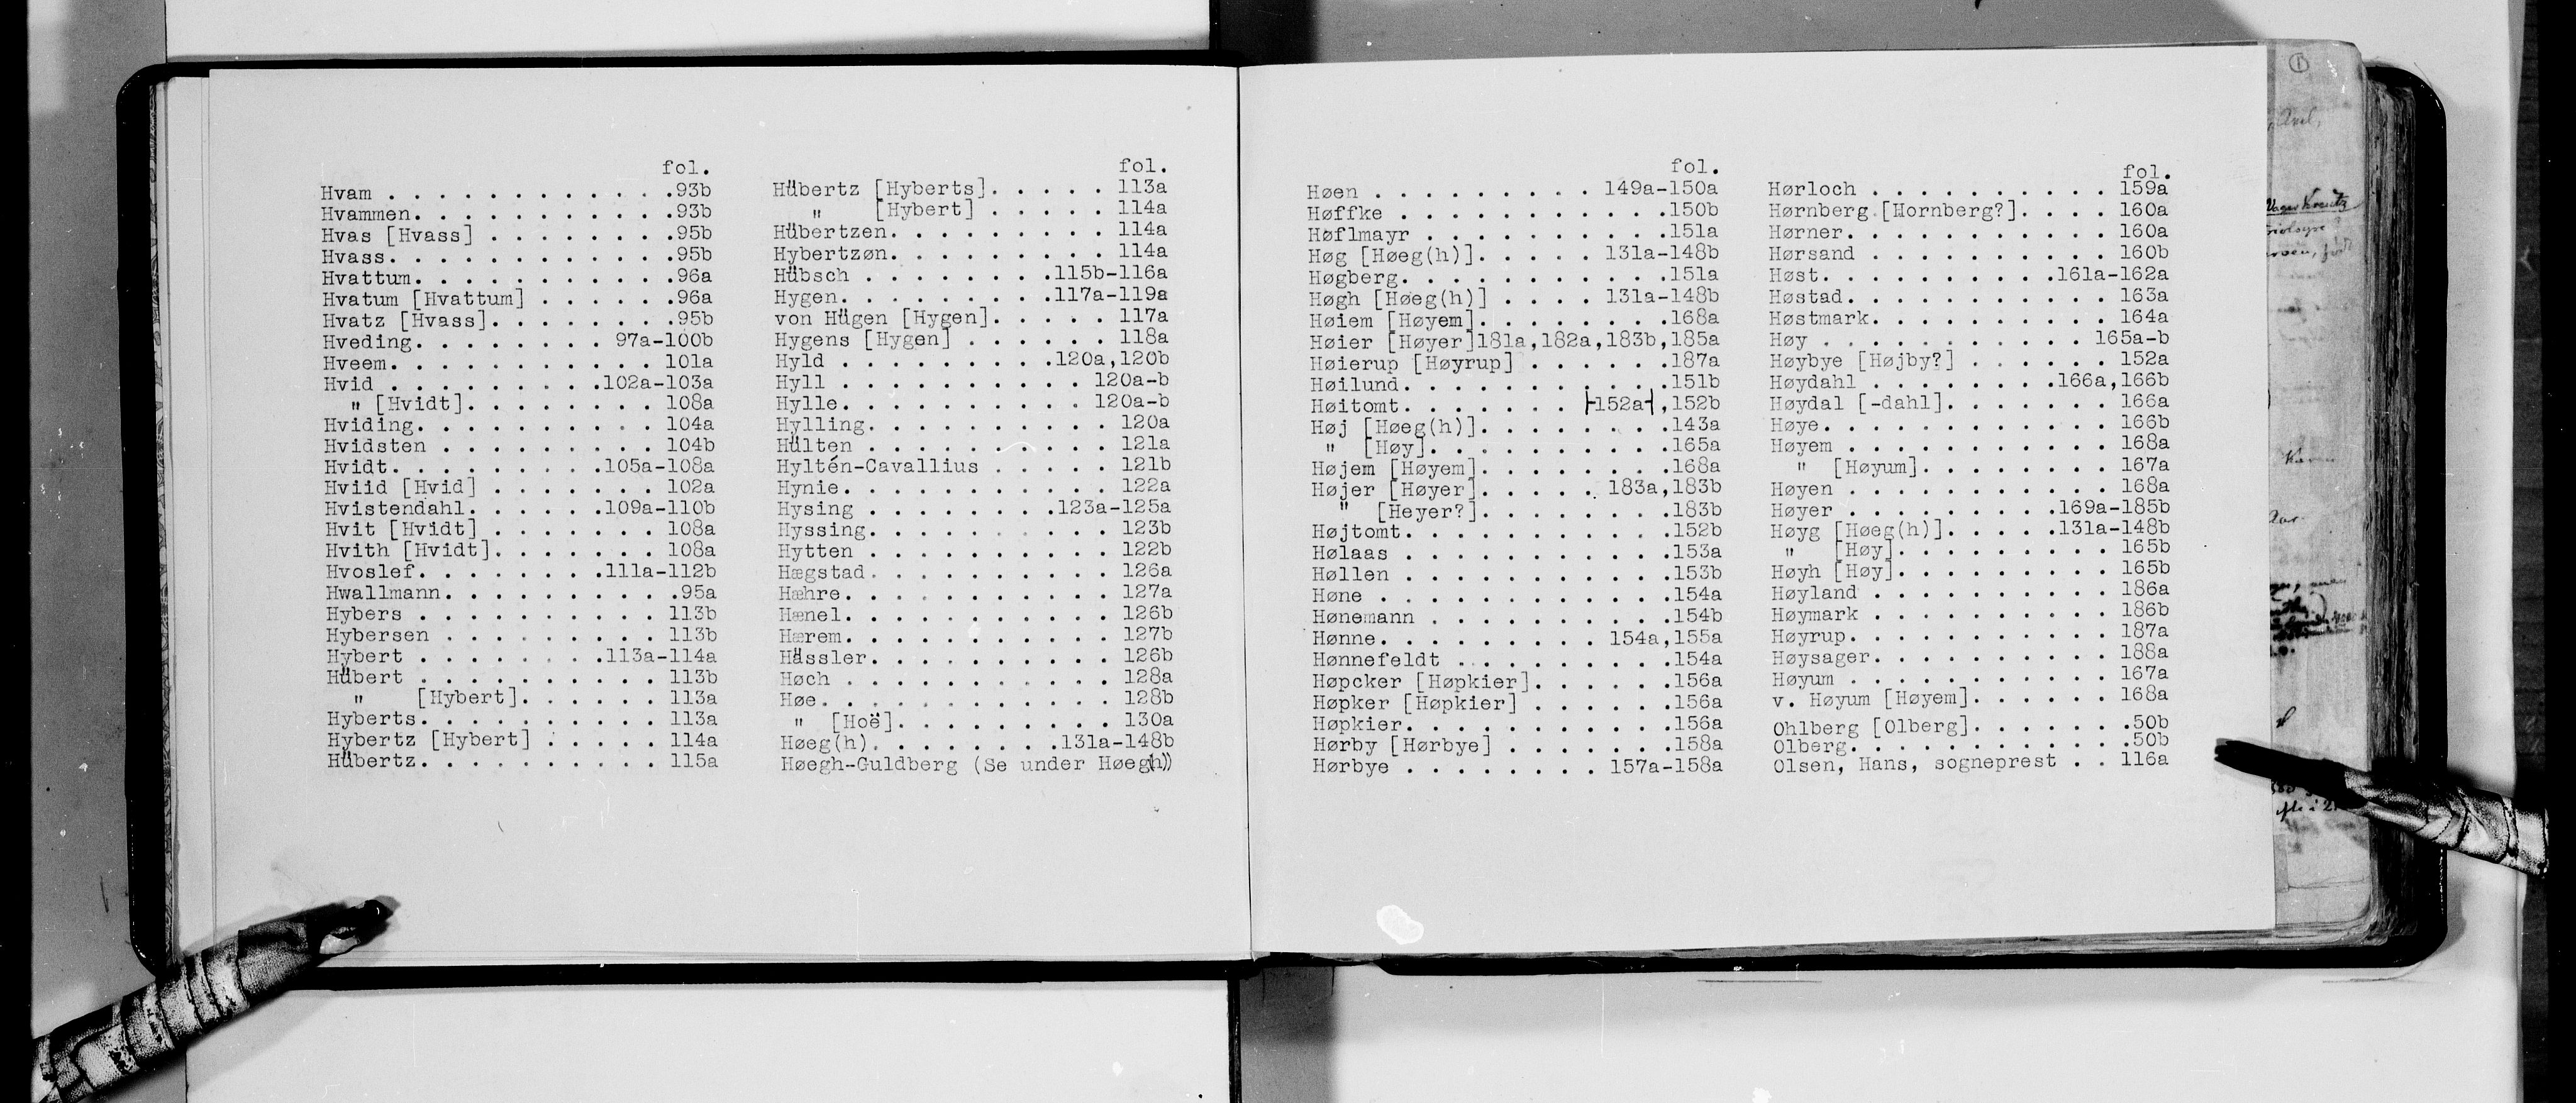 fol.
Hvam . . . . . . . . . . . . .93b
Hvammen. . . . . . . . . . . .93b
Hvas [Hvass] . . . . . . . . .95b
Hvass. . . . . . . . . . . . .95b
Hvattum. . . . . . . . . . . .96a
Hvatum [Hvattum] . . . . . . .96a
Hvatz [Hvass]. . . . . . . . .95b
Hveding. . . . . . . . . 97a-100b
Hveem. . . . . . . . . . . . 101a
Hvid . . . . . . . . . .102a-103a
" [Hvidt]. . . . . . . . . 108a
Hviding. . . . . . . . . . . 104a
Hvidsten . . . . . . . . . . 104b
Hvidt. . . . . . . . . .105a-108a
Hviid [Hvid] . . . . . . . . 102a
Hvistendahl. . . . . . .109a-110b
Hvit [Hvidt] . . . . . . . . 108a
Hvith [Hvidt]. . . . . . . . 108a
Hvoslef. . . . . . . . .111a-112b
Hwallmann. . . . . . . . . . .95a
Hybers . . . . . . . . . . . 113b
Hybersen . . . . . . . . . . 113b
Hybert . . . . . . . . .113a-114a
Hübert . . . . . . . . . . . 113b
" [Hybert]. . . . . . . 113a
Hyberts. . . . . . . . . . . 113a
Hybertz [Hybert] . . . . . . 114a
Hübertz. . . . . . . . . . . 115a
fol.
Hübertz [Hyberts]. . . . . . 113a
" [Hybert] . . . . . . 114a
Hübertzen. . . . . . . . . . 114a
Hybertzøn. . . . . . . . . . 114a
Hübsch . . . . . . . . .115b-116a
Hygen. . . . . . . . . .117a-119a
von Hügen [Hygen]. . . . . . 117a
Hygens [Hygen] . . . . . . . 118a
Hyld . . . . . . . . . .120a,120b
Hyll . . . . . . . . . . . 120a-b
Hylle. . . . . . . . . . . 120a-b
Hylling. . . . . . . . . . . 120a
Hülten . . . . . . . . . . . 121a
Hyltén-Cavallius . . . . . . 121b
Hynie. . . . . . . . . . . . 122a
Hysing . . . . . . . . .123a-125a
Hyssing. . . . . . . . . . . 123b
Hytten . . . . . . . . . . . 122b
Hægstad. . . . . . . . . . . 126a
Hæhre. . . . . . . . . . . . 127a
Hænel. . . . . . . . . . . . 126b
Hærem. . . . . . . . . . . . 127b
Hässler. . . . . . . . . . . 126b
Høch . . . . . . . . . . . . 128a
Høe. . . . . . . . . . . . . 128b
" [Hoë]. . . . . . . . . . 130a
Høeg(h). . . . . . . . .131a-148b
Høegh-Guldberg (Se under Høeg(h))
fol.
Høen . . . . . . . . . 149a-150a
Høffke . . . . . . . . . . . .150b
Høflmayr . . . . . . . . . . .151a
Høg [Høeg(h)]. . . . . 131a-148b
Høgberg. . . . . . . . . . . .151a
Høgh [Høeg(h)] . . . . 131a-148b
Høiem [Høyem]. . . . . . . . .168a
Høier [Høyer]181a,182a,183b,185a
Høierup [Høyrup] . . . . . . .187a
Høilund. . . . . . . . . . . .151b
Høitomt. . . . . . . ⊦152a⊣,152b
Høj [Høeg(h)]. . . . . . . . .143a
" [Høy]. . . . . . . . . . .165a
Højem [Høyem]. . . . . . . . .168a
Højer [Høyer]. . . . . 183a,183b
" [Heyer?]. . . . . . . . .183b
Højtomt. . . . . . . . . . . .152b
Hølaas . . . . . . . . . . . .153a
Høllen . . . . . . . . . . . .153b
Høne . . . . . . . . . . . . .154a
Hønemann . . . . . . . . . . .154b
Hønne. . . . . . . . . 154a,155a
Hønnefeldt . . . . . . . . . .154a
Høpcker [Høpkier]. . . . . . .156a
Høpker [Høpkier] . . . . . . .156a
Høpkier. . . . . . . . . . . .156a
Hørby [Hørbye] . . . . . . . .158a
Hørbye . . . . . . . . 157a-158a
fol.
Hørloch . . . . . . . . . . 159a
Hørnberg [Hornberg?]. . . . 160a
Hørner. . . . . . . . . . . 160a
Hørsand . . . . . . . . . . 160b
Høst. . . . . . . . . .161a-162a
Høstad. . . . . . . . . . . 163a
Høstmark. . . . . . . . . . 164a
Høy . . . . . . . . . . . 165a-b
Høybye [Højby?] . . . . . . 152a
Høydahl . . . . . . . .166a,166b
Høydal [-dahl]. . . . . . . 166a
Høye. . . . . . . . . . . . 166b
Høyem . . . . . . . . . . . 168a
" [Høyum]. . . . . . . . 167a
Høyen . . . . . . . . . . . 168a
Høyer . . . . . . . . .169a-185b
Høyg [Høeg(h)]. . . . .131a-148b
" [Høy]. . . . . . . . . 165b
Høyh [Høy]. . . . . . . . . 165b
Høyland . . . . . . . . . . 186a
Høymark . . . . . . . . . . 186b
Høyrup. . . . . . . . . . . 187a
Høysager. . . . . . . . . . 188a
Høyum . . . . . . . . . . . 167a
v. Høyum [Høyem]. . . . . . 168a
Ohlberg [Olberg]. . . . . . .50b
Olberg. . . . . . . . . . . .50b
Olsen, Hans, sogneprest . . 116a
1